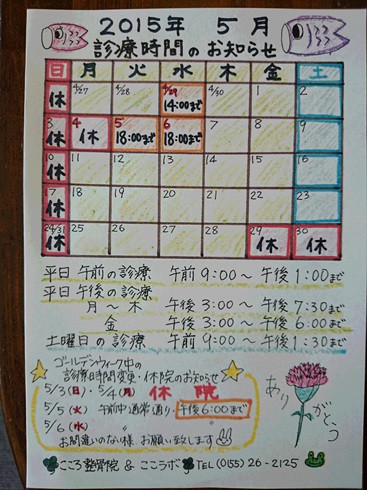 2015年 5月
診療時間のお知らせ
日 月 火 水 木 金 土
休 4/27 4/28 4/29 14:00まで 4/30 1 2
3 休 4 休 5 18:00まで 6 18:00まで 7 8 9
10 休 11 12 13 14 15 16
17 休 18 19 20 21 22 23
24/31 休 25 26 27 28 29 休 30 休
平日 午前の診療 午前 9:00〜午後 1:00まで
平日 午後の診療
月〜木 午後 3:00〜午後 7:30まで
金 午後 3:00〜午後 6:00まで
土曜日の診療 午前 9:00〜午後 1:30まで
ゴールデンウィーク中の
診療時間変更・休院のお知らせ
5/3(日)・5/4(月) 休院
5/5(火) 午前中通常通り 午後6:00まで
5/6(水) 〃
お間違いのない様、お願い致します
ありがとう
こころ整骨院 & ここラボ TEL (0155) 26-2125